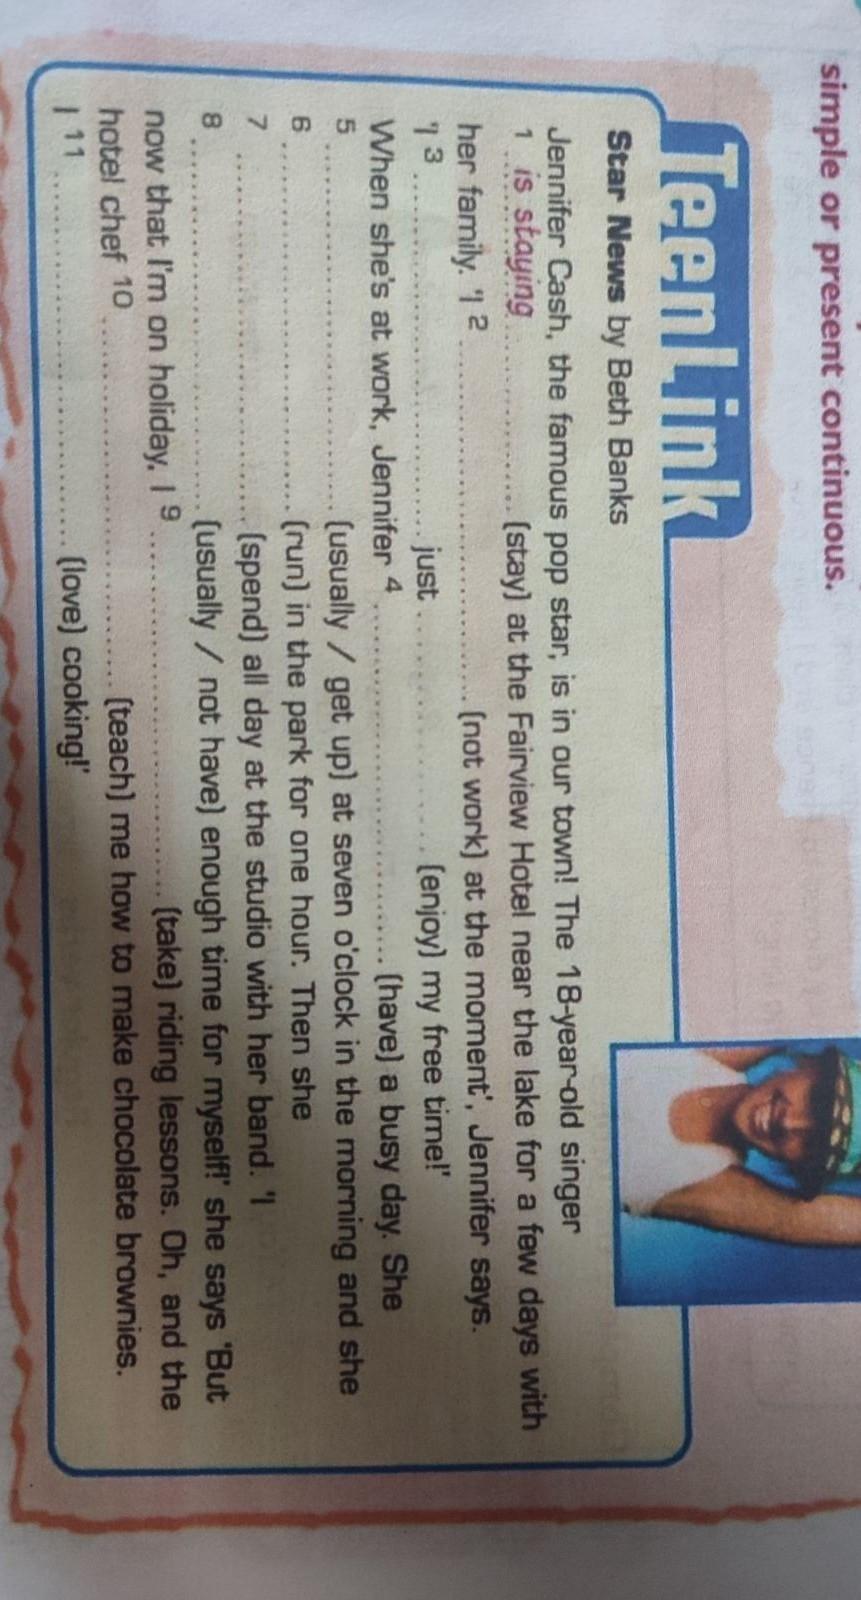 simple or present continuous.
TeenLink
Star News by Beth Banks
Jennifer Cash, the famous pop star, is in our town! The 18-year-old singer
1 is staying (stay) at the Fairview Hotel near the lake for a few days with
her family. 'I 2 .................... (not work) at the moment', Jennifer says.
'I 3 .................... just .................... (enjoy) my free time!'
When she's at work, Jennifer 4 .................... (have) a busy day. She
5 .................... (usually / get up) at seven o'clock in the morning and she
6 .................... (run) in the park for one hour. Then she
7 .................... (spend) all day at the studio with her band. 'I
8 .................... (usually / not have) enough time for myself!' she says 'But
now that I'm on holiday, I 9 .................... (take) riding lessons. Oh, and the
hotel chef 10 .................... (teach) me how to make chocolate brownies.
I 11 .................... (love) cooking!'